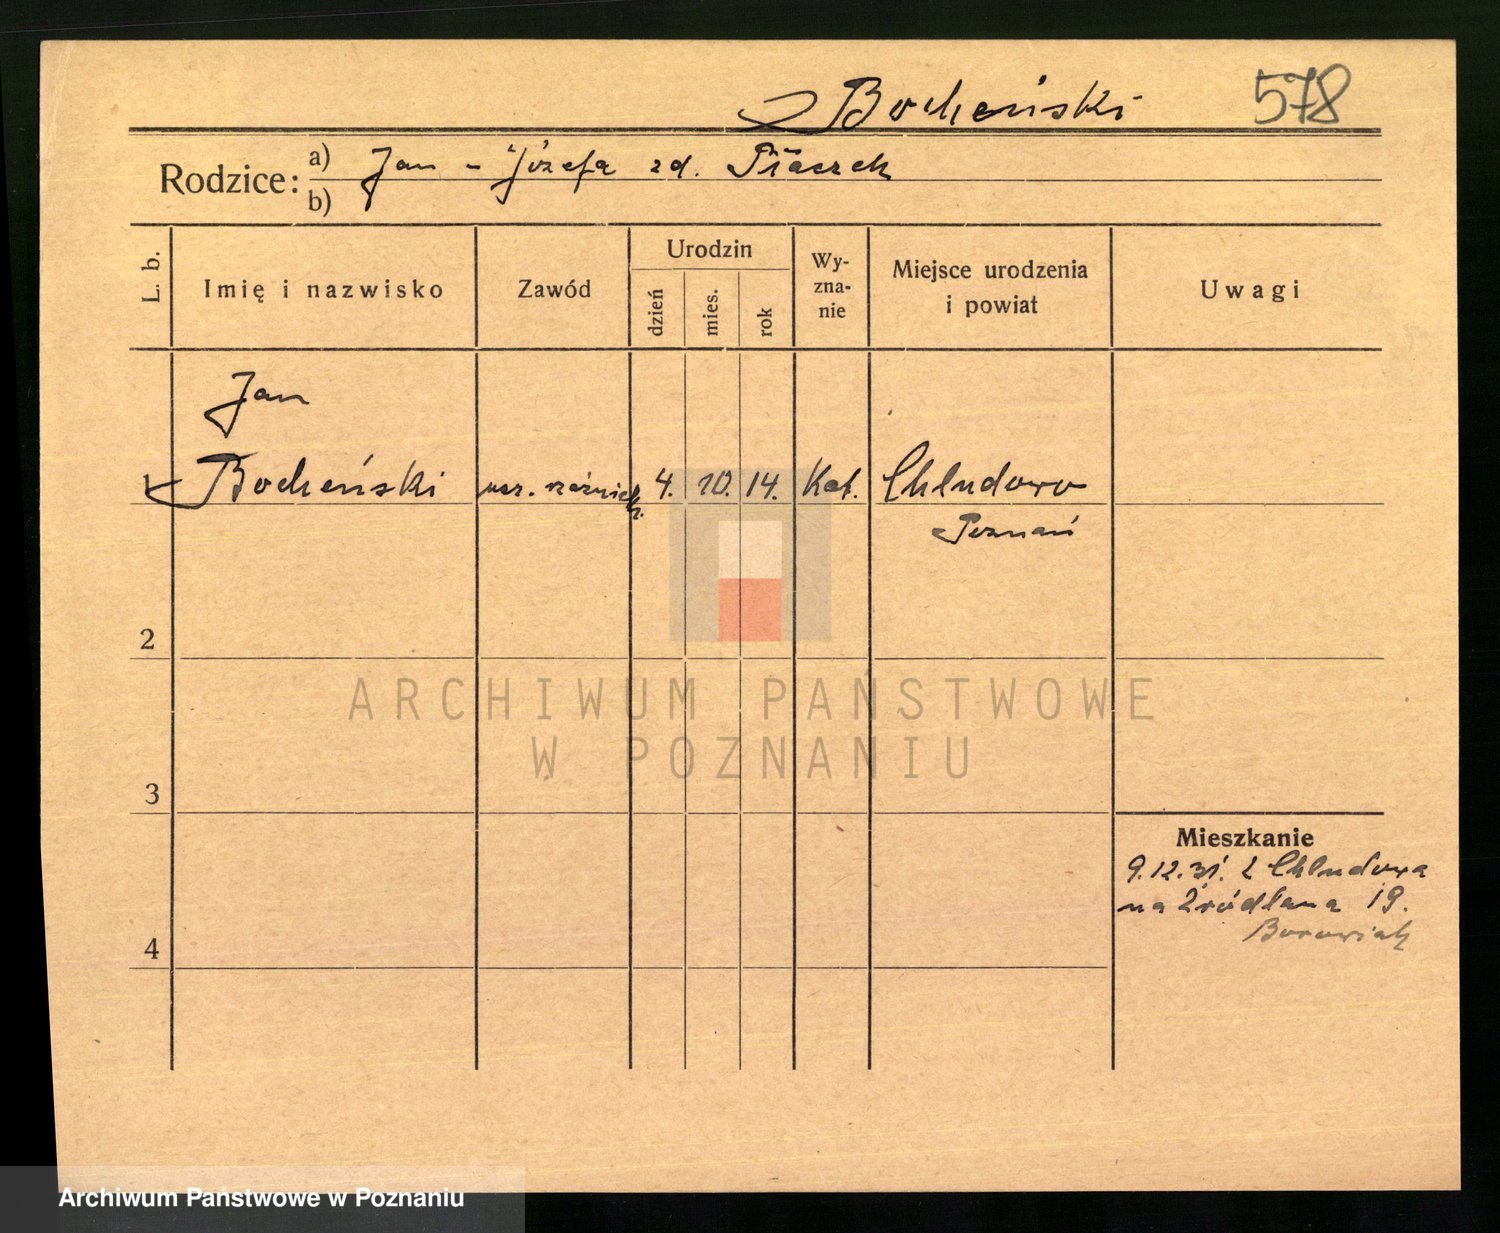 Bocheński 578
Rodzice: a) Jan - Józefa zd. Ptaszek
b)
L. b. Imię i nazwisko Zawód Urodzin dzień mies. rok Wy-zna-nie Miejsce urodzenia i powiat Uwagi
Jan
Bocheński ucz. rzeźnick. 4. 10. 14. Kat. Chludowo
Poznań
2
ARCHIWUM PAŃSTWOWE
W POZNANIU
3
Mieszkanie
9.12.31. z Chludowa
na Źródlana 19.
Borowiak
4
Archiwum Państwowe w Poznaniu